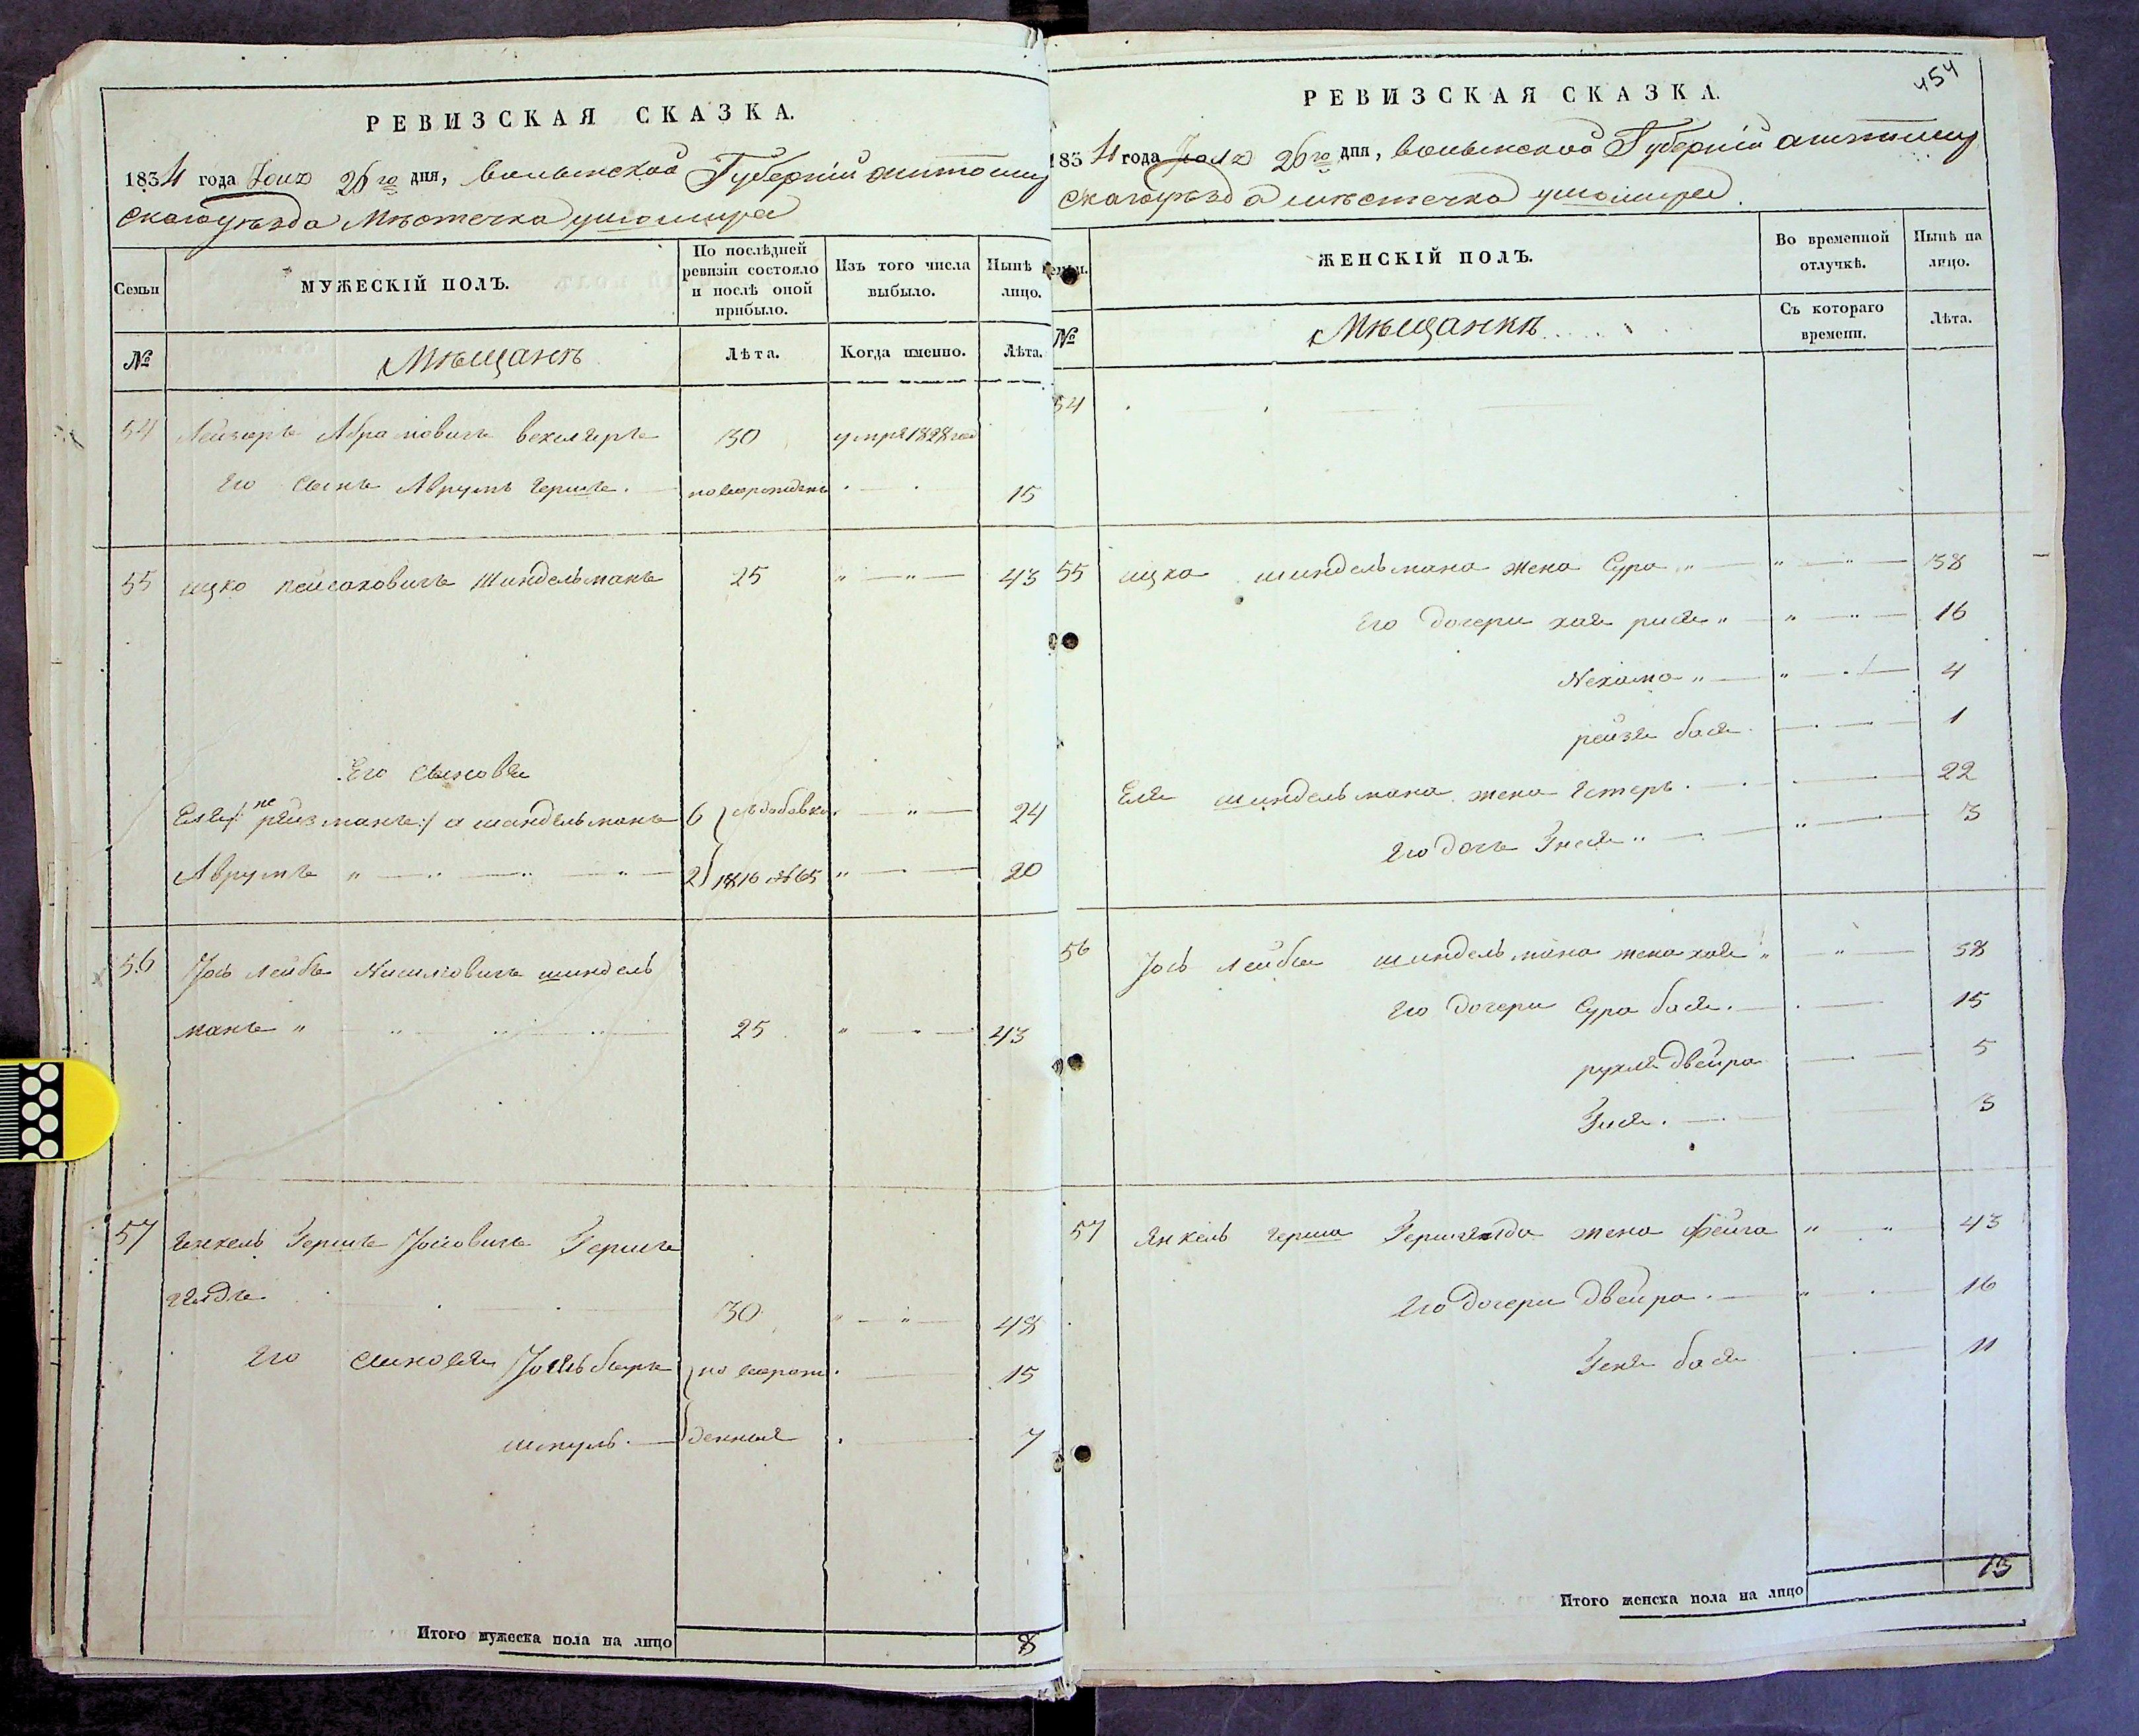 РЕВИЗСКАЯ СКАЗКА.
1834 года Юля 26го дня, Волынской Губерніи Житомир
скаго уѣзда Мѣстечка Ушомира
Семьи
МУЖЕСКІЙ ПОЛЪ.
По послѣдней ревизіи состояло и послѣ оной прибыло.
Изъ того числа выбыло.
Нынѣ лицо.
№
Мѣщане
Лѣта.
Когда именно.
Лѣта.
54 Лейзоръ Абрамовичъ 30 умре 1828 год
Его сынъ Аврумъ Гершъ. новорожденъ 15
55 Ицко Пейсаховичъ Шиндельманъ 25 43
Его сыновя
Еля /: не рейзманъ :/ а шандельманъ 6 24
Аврумъ 2 1816 №65 20
56 Іось Лейбъ Нисимовичъ шиндель
манъ 25 43
57 Янкель Гершъ Іосиовичъ Герше
30 48
Его синовя 15
шмуль. денные 7
Итого мужеска пола на лицо 8
454
РЕВИЗСКАЯ СКАЗКА.
1834 года Юля 26го дня, Волынской Губерніи Житомир
скаго уѣзда мѣстечка ушомира.
Семьи.
ЖЕНСКІЙ ПОЛЪ.
Во временной отлучкѣ.
Нынѣ на лицо.
№
Мѣщанкѣ
Съ котораго времени.
Лѣта.
54
55 ицка шиндельмана жена Сура 38
Его дочери хая рися 16
Нехама 4
рейзя бася 1
Еля шиндельмана жена Естеръ. 22
Его дочь Знеся 3
56 Іось Лейбы шиндельмана жена хая 38
Его дочери Сура бася. 15
рухля двейра 5
Зися. 3
57 Янкель герша жена фейга 43
Его дочери двейра. 16
Геня бася 11
Итого женска пола на лицо 13